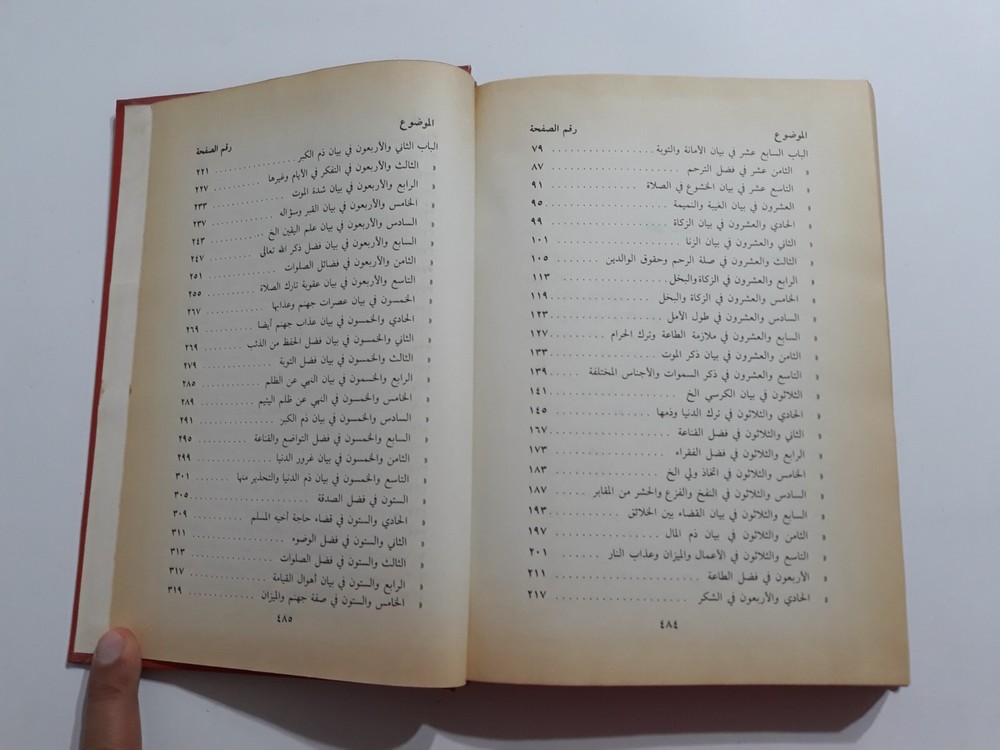 الموضوع رقم الصفحة
الباب السابع عشر في بيان الأمانة والتوبة . . . ٧٩
« الثامن عشر في فضل الترحم . . . ٨٧
« التاسع عشر في بيان الخشوع في الصلاة . . . ٩١
« العشرون في بيان الغيبة والنميمة . . . ٩٥
« الحادي والعشرون في بيان الزكاة . . . ٩٩
« الثاني والعشرون في بيان الزنا . . . ١٠١
« الثالث والعشرون في صلة الرحم وحقوق الوالدين . . . ١٠٥
« الرابع والعشرون في الزكاة والبخل . . . ١١٣
« الخامس والعشرون في الزكاة والبخل . . . ١١٩
« السادس والعشرون في طول الأمل . . . ١٢٣
« السابع والعشرون في ملازمة الطاعة وترك الحرام . . . ١٢٧
« الثامن والعشرون في بيان ذكر الموت . . . ١٣٣
« التاسع والعشرون في ذكر السموات والأجناس المختلفة . . . ١٣٩
« الثلاثون في بيان الكرسي الخ . . . ١٤١
« الحادي والثلاثون في ترك الدنيا وذمها . . . ١٤٥
« الثاني والثلاثون في فضل القناعة . . . ١٦٧
« الرابع والثلاثون في فضل الفقراء . . . ١٧٣
« الخامس والثلاثون في اتخاذ ولي الخ . . . ١٨٣
« السادس والثلاثون في النفخ والفزع والحشر من المقابر . . . ١٨٧
« السابع والثلاثون في بيان القضاء بين الخلائق . . . ١٩٣
« الثامن والثلاثون في بيان ذم المال . . . ١٩٧
« التاسع والثلاثون في الأعمال والميزان وعذاب النار . . . ٢٠١
« الأربعون في فضل الطاعة . . . ٢١١
« الحادي والأربعون في الشكر . . . ٢١٧
٤٨٤
الموضوع رقم الصفحة
الباب الثاني والأربعون في بيان ذم الكبر . . . ٢٢١
« الثالث والأربعون في التفكر في الأيام وغيرها . . . ٢٢٧
« الرابع والأربعون في بيان شدة الموت . . . ٢٣٣
« الخامس والأربعون في بيان القبر وسؤاله . . . ٢٣٧
« السادس والأربعون في بيان علم اليقين الخ . . . ٢٤٣
« السابع والأربعون في بيان فضل ذكر الله تعالى . . . ٢٤٧
« الثامن والأربعون في فضائل الصلوات . . . ٢٥١
« التاسع والأربعون في بيان عقوبة تارك الصلاة . . . ٢٥٥
« الخمسون في بيان عصرات جهنم وعذابها . . . ٢٦٧
« الحادي والخمسون في بيان عذاب جهنم أيضا . . . ٢٦٩
« الثاني والخمسون في بيان فضل الحفظ من الذنب . . . ٢٦٩
« الثالث والخمسون في بيان فضل التوبة . . . ٢٧٩
« الرابع والخسمون في بيان النهي عن الظلم . . . ٢٨٥
« الخامس والخمسون في النهي عن ظلم اليتيم . . . ٢٨٩
« السادس والخمسون في بيان ذم الكبر . . . ٢٩١
« السابع والخمسون في فضل التواضع والقناعة . . . ٢٩٥
« الثامن والخمسون في بيان غرور الدنيا . . . ٢٩٩
« التاسع والخمسون في بيان ذم الدنيا والتحذير منها . . . ٣٠١
« الستون في فضل الصدقة . . . ٣٠٥
« الحادي والستون في قضاء حاجة أخيه المسلم . . . ٣٠٩
« الثاني والستون في فضل الوضوء . . . ٣١١
« الثالث والستون في فضل الصلوات . . . ٣١٣
« الرابع والستون في بيان أهوال القيامة . . . ٣١٧
« الخامس والستون في صفة جهنم والميزان . . . ٣١٩
٤٨٥